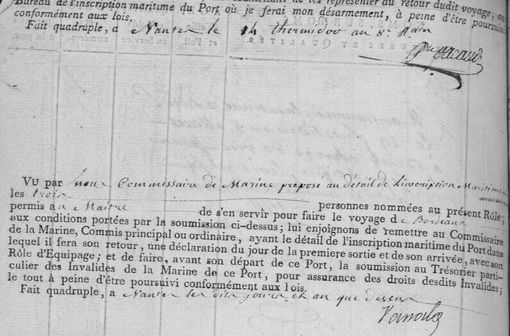 Bureau de l'inscription maritime du Port où je ferai mon désarmement, à peine d'être poursuivi
conformément aux lois.
Fait quadruple, à Nantes le 14 thermidor an 8.
VU par nous Commissaire de Marine préposé au détail de l'inscription Maritime
les trois personnes nommées au présent Rôle;
permis au Maitre de s'en servir pour faire le voyage de Bordeaux
aux conditions portées par la soumission ci-dessus; lui enjoignons de remettre au Commissaire
de la Marine, Commis principal ou ordinaire, ayant le détail de l'inscription maritime du Port dans
lequel il fera son retour, une déclaration du jour de la premiere sortie et de son arrivée, avec son
Rôle d'Equipage; et de faire, avant son départ de ce Port, la soumission au Trésorier parti-
culier des Invalides de la Marine de ce Port, pour assurance des droits desdits Invalides;
le tout à peine d'être poursuivi conformément aux lois.
Fait quadruple, à Nantes les dits jour et an que dessus